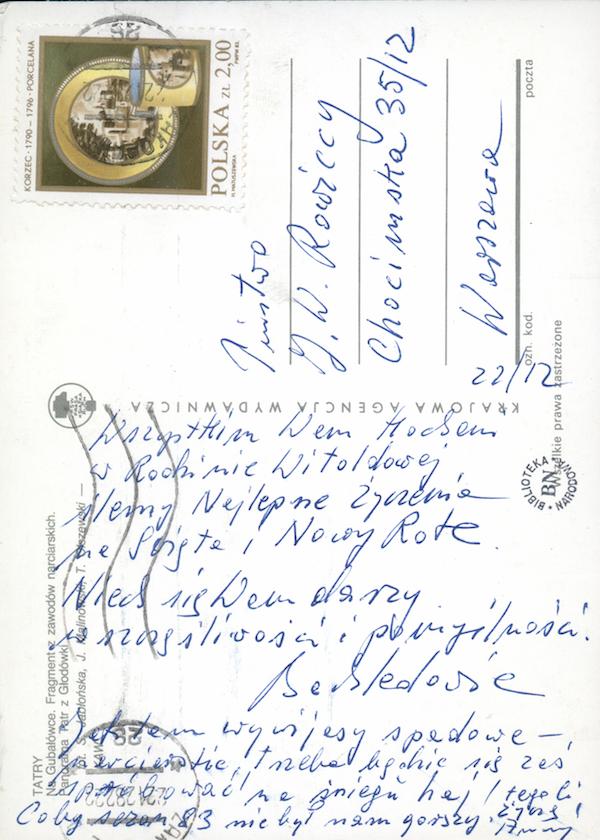 KORZEC · 1790 – 1796 · PORCELANA
POLSKA ZŁ 2,00
PWPW 82.
H. MATUSZEWSKA
poczta
ozn. kod.
Państwo
J. W. Rowiccy
Chocimska 35/12
Warszawa
22/12
KRAJOWA AGENCJA WYDAWNICZA
Wszelkie prawa zastrzeżone
BIBLIOTEKA NARODOWA
BN
TATRY
Na Gubałówce. Fragment z zawodów narciarskich.
Panorama Tatr z Głodówki
S. Jabłońska, J. Malinowski, T. Olszewski
Wszystkim Wam Kochani
w Rodzinie Witoldowej
ślemy Najlepsze Życzenia
na Święta i Nowy Rok
Niech się Wam darzy
w szczęśliwości i pomyślności.
spadowe –
trzeba będzie się zaś
spróbować na śniegu haj!
Coby sezon 83 nie był nam gorszy